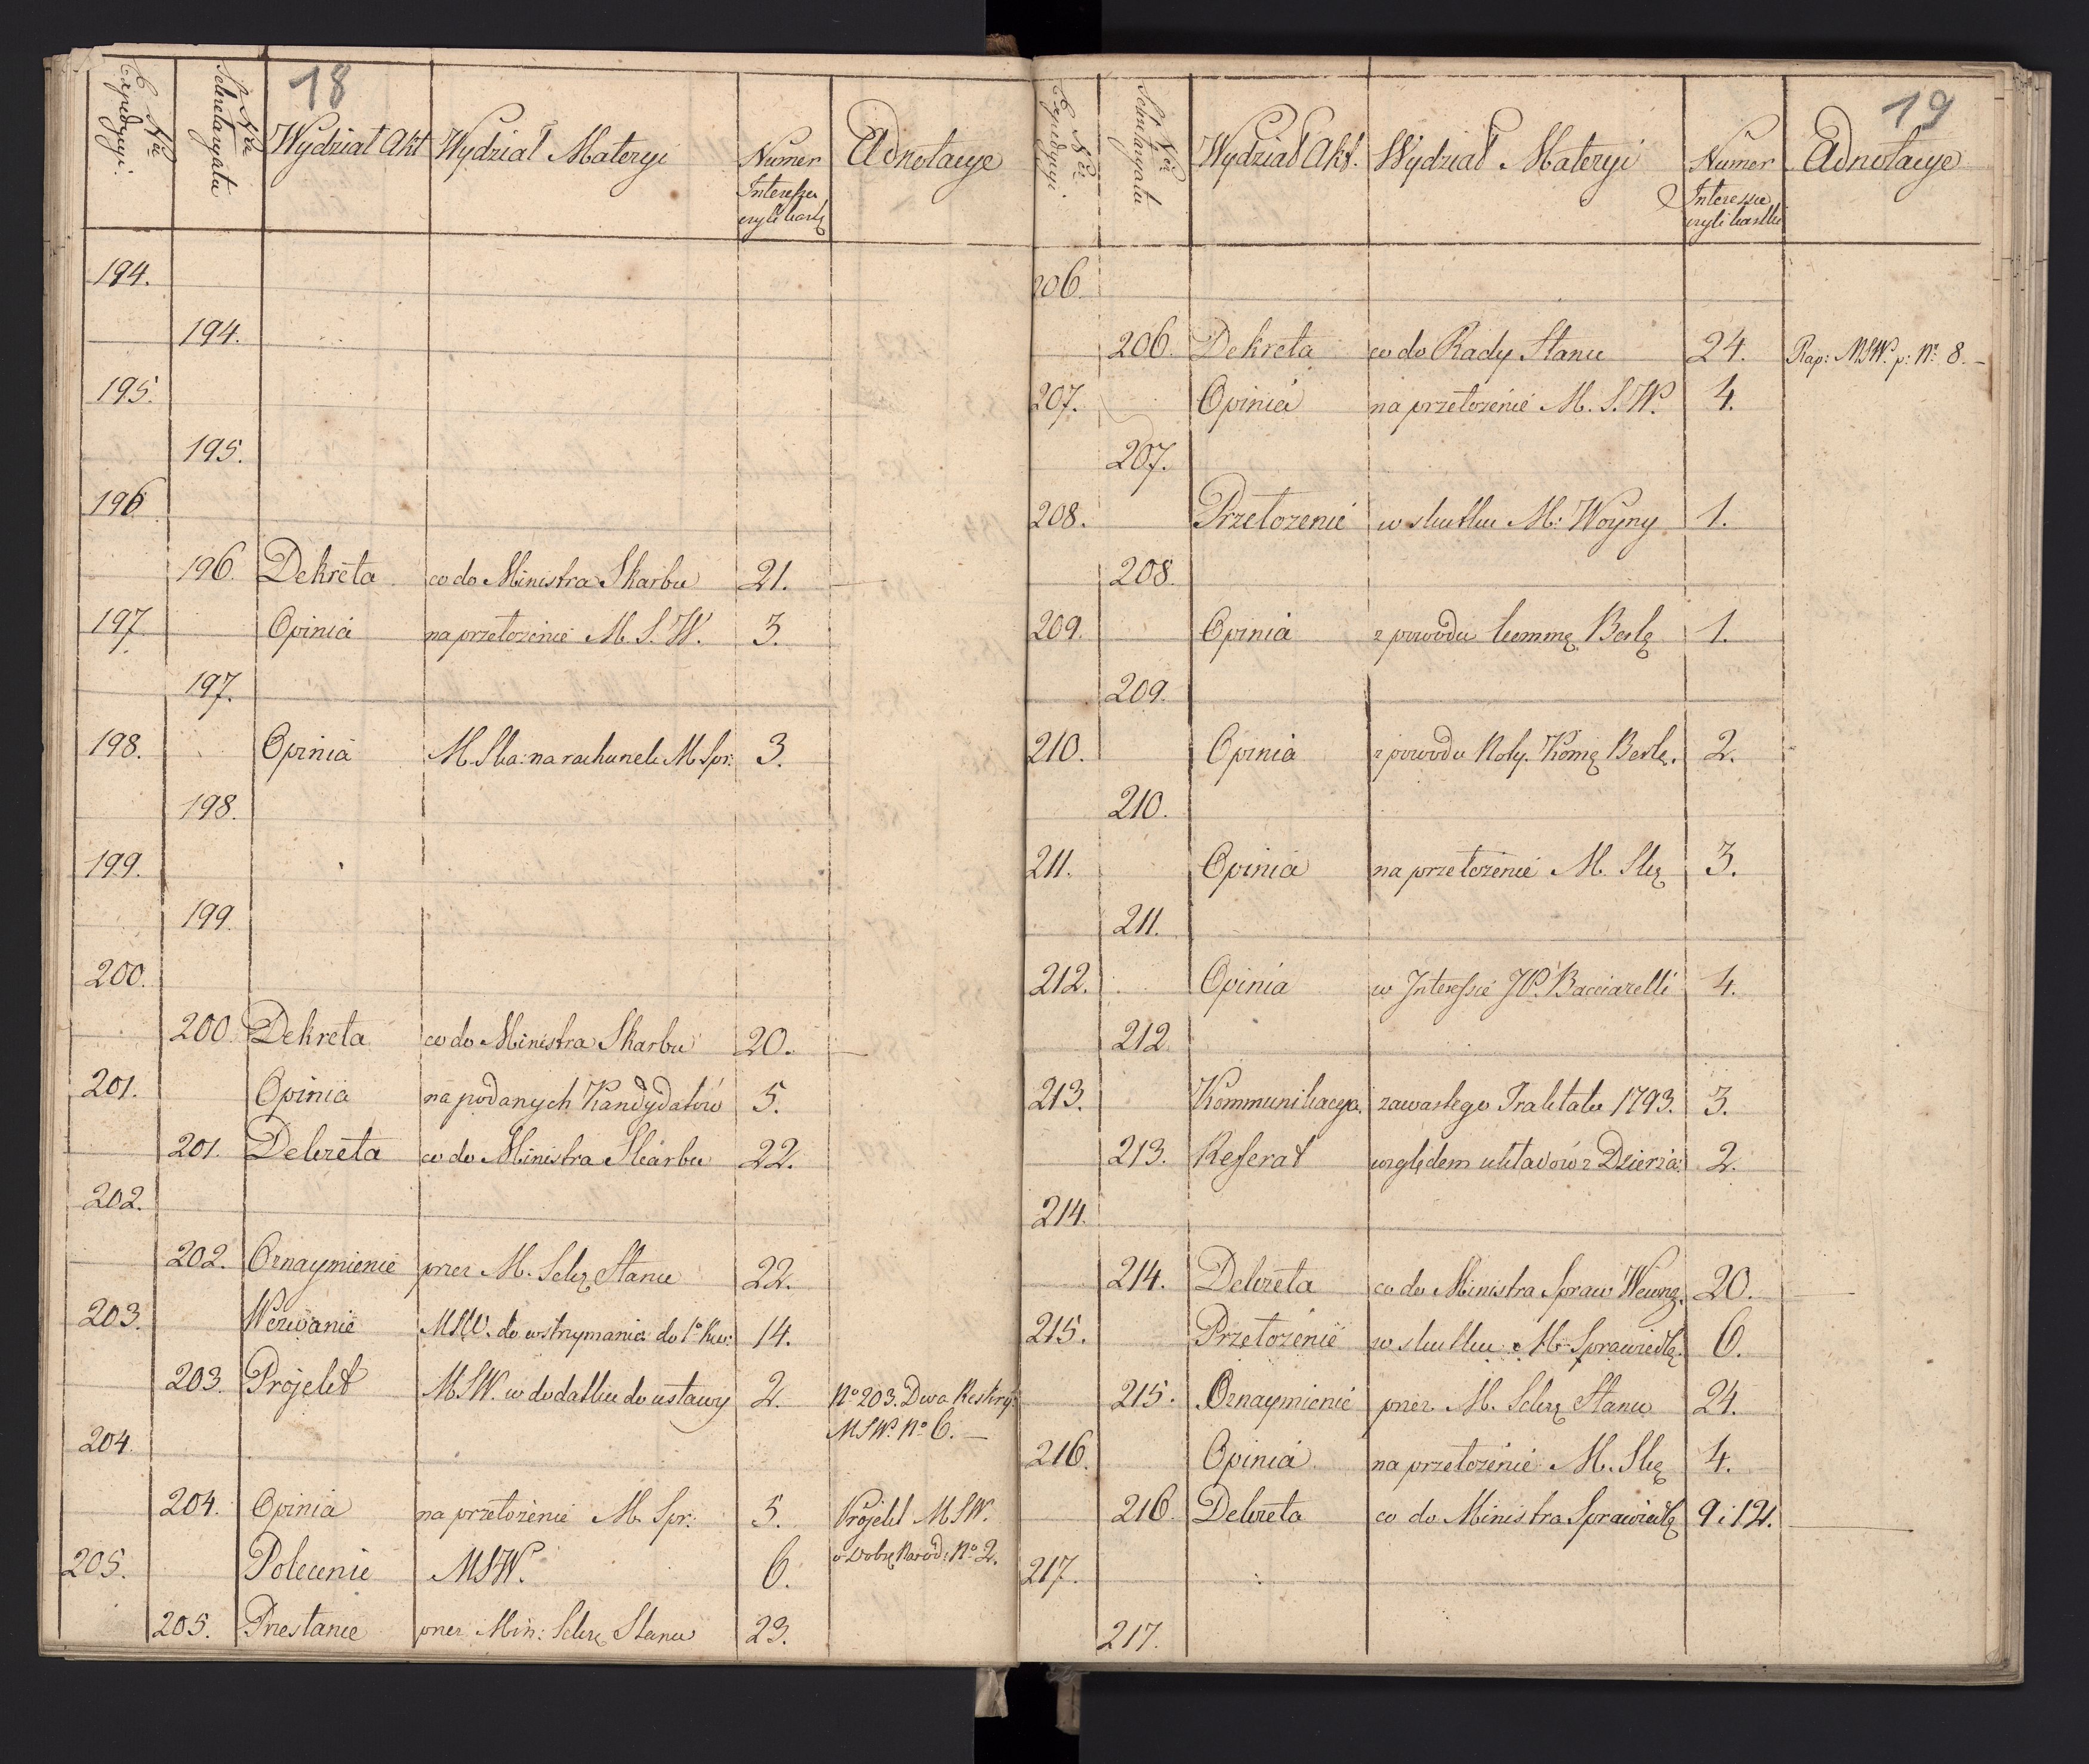 18
Nr Expedycyi.
Nr Sekretaryatu
Wydział Akt
Wydział Materyi
Numer Interessu czyli kartki
Adnotacye
194.
194.
195.
195.
196
196. Dekreta co do Ministra Skarbu 21.
197. Opinia na przełożenie M. S. W. 3.
197.
198. Opinia M Ska: na rachunek M Spr: 3.
198.
199.
199.
200.
200. Dekreta co do Ministra Skarbu 20.
201. Opinia na podanych Kandydatów 5.
201. Dekreta co do Ministra Skarbu 22.
202.
202. Oznaymienie przez M. Sekrę Stanu 22.
203. Wezwanie MSW. do wstrzymania do 1o Kw: 14.
203. Projekt MSW. w dodatku do ustawy 2. No 203. Dwa Reskry:
MSW. No 6. —
204.
204. Opinia na przełożenie M. Spr: 5. Projekt MSW.
205. Polecenie MSW. 6. o Dobrę Narod: No 2.
205. Przesłanie przez Min: Sekrę Stanu 23.
19
Nr Expedycyi.
Nr Sekretaryatu
Wydział Akt.
Wydział Materyi
Numer Interessu czyli kartki
Adnotacye
206.
206. Dekreta co do Rady Stanu 24. Rap: MSW. p: No 8. —
207. Opinia na przełożenie M. S. W. 4.
207.
208. Przełożenie w skutku M: Woyny 1.
208.
209. Opinia z powodu Summę Berlę 1.
209.
210. Opinia z powodu Noty. Komę Berlę. 2.
210.
211. Opinia na przełożenie M. Skę 3.
211.
212. Opinia w Interessie JP. Bacciarelli 4.
212.
213. Kommunikacya zawartego Traktatu 1793. 3.
213. Refferat względem układów z Dzierża: 2.
214.
214. Dekreta co do Ministra Spraw Wewnę. 20.
215. Przełożenie w skutku M. Sprawiedlę. 6.
215. Oznaymienie przez M. Sekrę Stanu 24.
216. Opinia na przełożenie M. Skę 4.
216. Dekreta co do Ministra Sprawiedlę 9 i 12.
217.
217.